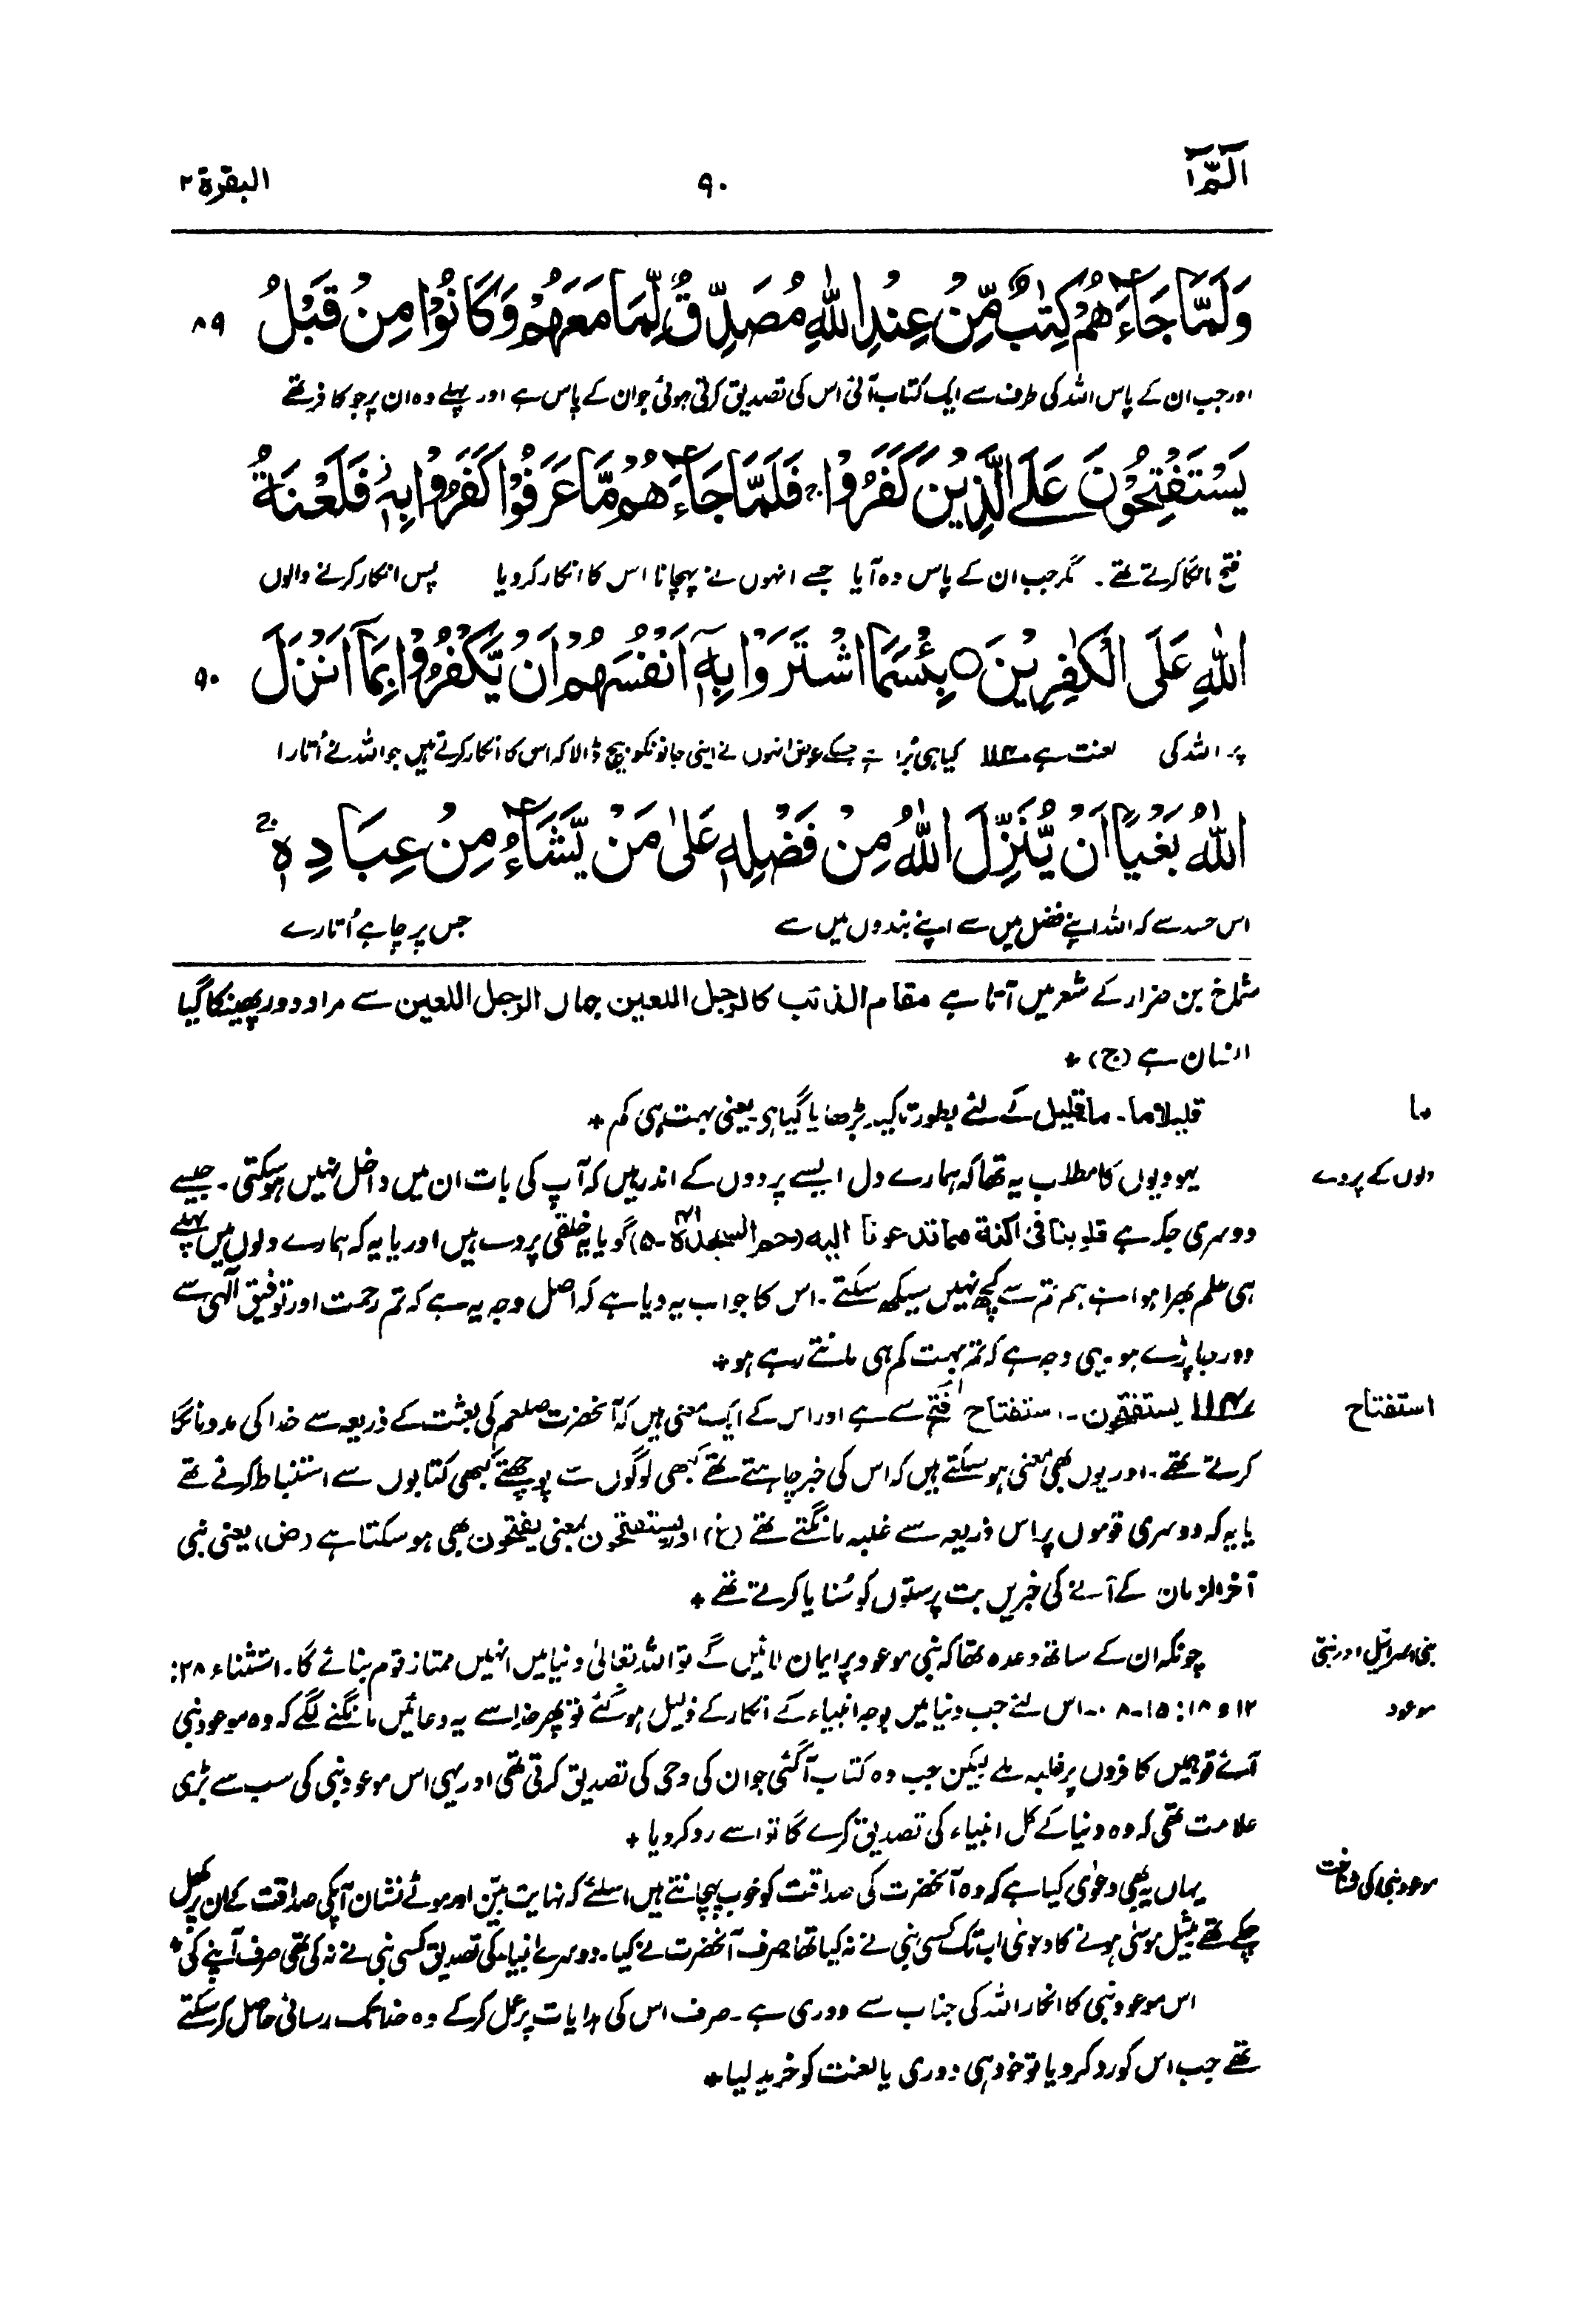 الٓمّٓ ۱
۹۰
البقرۃ ۲
وَلَمَّا جَآءَهُمْ كِتٰبٌ مِّنْ عِنْدِ اللّٰهِ مُصَدِّقٌ لِّمَا مَعَهُمْ وَكَانُوْا مِنْ قَبْلُ
۸۹
اور جب ان کے پاس اللہ کی طرف سے ایک کتاب آئی اس کی تصدیق کرتی ہوئی جو ان کے پاس ہے اور پہلے وہ ان پر جو کافر تھے
يَسْتَفْتِحُوْنَ عَلَى الَّذِيْنَ كَفَرُوْا ۚ فَلَمَّا جَآءَهُمْ مَّا عَرَفُوْا كَفَرُوْا بِهٖ ۫ فَلَعْنَةُ
فتح مانگا کرتے تھے۔ مگر جب ان کے پاس وہ آیا جسے انہوں نے پہچانا اس کا انکار کردیا پس انکار کرنے والوں
اللّٰهِ عَلَى الْكٰفِرِيْنَ ○ بِئْسَمَا اشْتَرَوْا بِهٖٓ اَنْفُسَهُمْ اَنْ يَّكْفُرُوْا بِمَآ اَنْزَلَ
۹۰
پر اللہ کی لعنت ہے ۱۱۴ کیا ہی بُرا ہے جسکے عوض انہوں نے اپنی جانونکو بیچ ڈالا کہ اس کا انکار کرتے ہیں جو اللہ نے اُتارا
اللّٰهُ بَغْيًا اَنْ يُّنَزِّلَ اللّٰهُ مِنْ فَضْلِهٖ عَلٰى مَنْ يَّشَآءُ مِنْ عِبَادِهٖ ۚ
اس حسد سے کہ اللہ اپنے فضل میں سے اپنے بندوں میں سے جس پر چاہے اُتارے
شماخ بن ضرار کے شعر میں آتا ہے مقام الذئب کالرجل اللعین جہاں الرجل اللعین سے مراد دور پھینکا گیا
انسان ہے (ج) ٭
ما
قلیلا ما۔ ما قلیل کے لئے بطور تاکید بڑھایا گیا ہو یعنی بہت ہی کم ٭
دلوں کے پردے
یہودیوں کا مطلب یہ تھا کہ ہمارے دل ایسے پردوں کے اندر ہیں کہ آپ کی بات ان میں داخل نہیں ہو سکتی۔ جیسے
دوسری جگہ ہے قلوبنا فی اکنة مما تدعونا الیه (حم السجدة ۴۱-۵) گویا یہ خلقی پردے ہیں اور یا یہ کہ ہمارے دلوں میں پہلے
ہی علم بھرا ہوا ہے ہم تم سے کچھ نہیں سیکھ سکتے۔ اس کا جواب یہ دیا ہے کہ اصل وجہ یہ ہے کہ تم رحمت اور توفیق الٰہی سے
دور جا پڑے ہو۔ یہی وجہ ہے کہ تم بہت کم ہی مانتے رہے ہو ٭
استفتاح
۱۱۴ یستفتحون۔ استفتاح فتح سے ہے اور اس کے ایک معنی ہیں کہ آنحضرت صلعم کی بعثت کے ذریعہ سے خدا کی مدد مانگا
کرتے تھے۔ اور یوں بھی معنی ہو سکتے ہیں کہ اس کی خبر چاہتے تھے کبھی لوگوں سے پوچھتے کبھی کتابوں سے استنباط کرتے تھے
یا یہ کہ دوسری قوموں پر اس ذریعہ سے غلبہ مانگتے تھے (غ) اور یستفتحون بمعنی یفتحون بھی ہو سکتا ہے (ض) یعنی نبی
آخر الزمان کے آنے کی خبریں بت پرستوں کو سُنایا کرتے تھے ٭
بنی اسرائیل اور نبی موعود
چونکہ ان کے ساتھ وعدہ تھا کہ نبی موعود پر ایمان لائیں گے تو اللہ تعالیٰ دنیا میں انہیں ممتاز قوم بنائے گا۔ استثناء ۲۸:
۱۲ و ۱۸: ۱۵-۱۸۔ اس لئے جب دنیا میں بوجہ انبیاء کے انکار کے ذلیل ہو گئے تو پھر خدا سے یہ دعائیں مانگنے لگے کہ وہ موعود نبی
آئے تو ہمیں کافروں پر غلبہ ملے لیکن جب وہ کتاب آگئی جو ان کی وحی کی تصدیق کرتی تھی اور یہی اس موعود نبی کی سب سے بڑی
علامت تھی کہ وہ دنیا کے کل انبیاء کی تصدیق کرے گا تو اسے رد کردیا ٭
موعود نبی کی شناخت
یہاں یہ بھی دعویٰ کیا ہے کہ وہ آنحضرت کی صداقت کو خوب پہچانتے ہیں اسلئے کہ نہایت بیّن اور موٹے نشان آپکی صداقت کے ان پر کھل
چکے تھے مثیل موسٰی ہونے کا دعویٰ اب تک کسی نبی نے نہ کیا تھا صرف آنحضرت نے کیا۔ دوسرے انبیاء کی تصدیق کسی نبی نے نہ کی تھی صرف آپنے کی ٭
اس موعود نبی کا انکار اللہ کی جناب سے دوری ہے۔ صرف اس کی ہدایات پر عمل کرکے وہ خدا تک رسائی حاصل کر سکتے
تھے جب اس کو رد کر دیا تو خود ہی دوری یا لعنت کو خرید لیا ٭